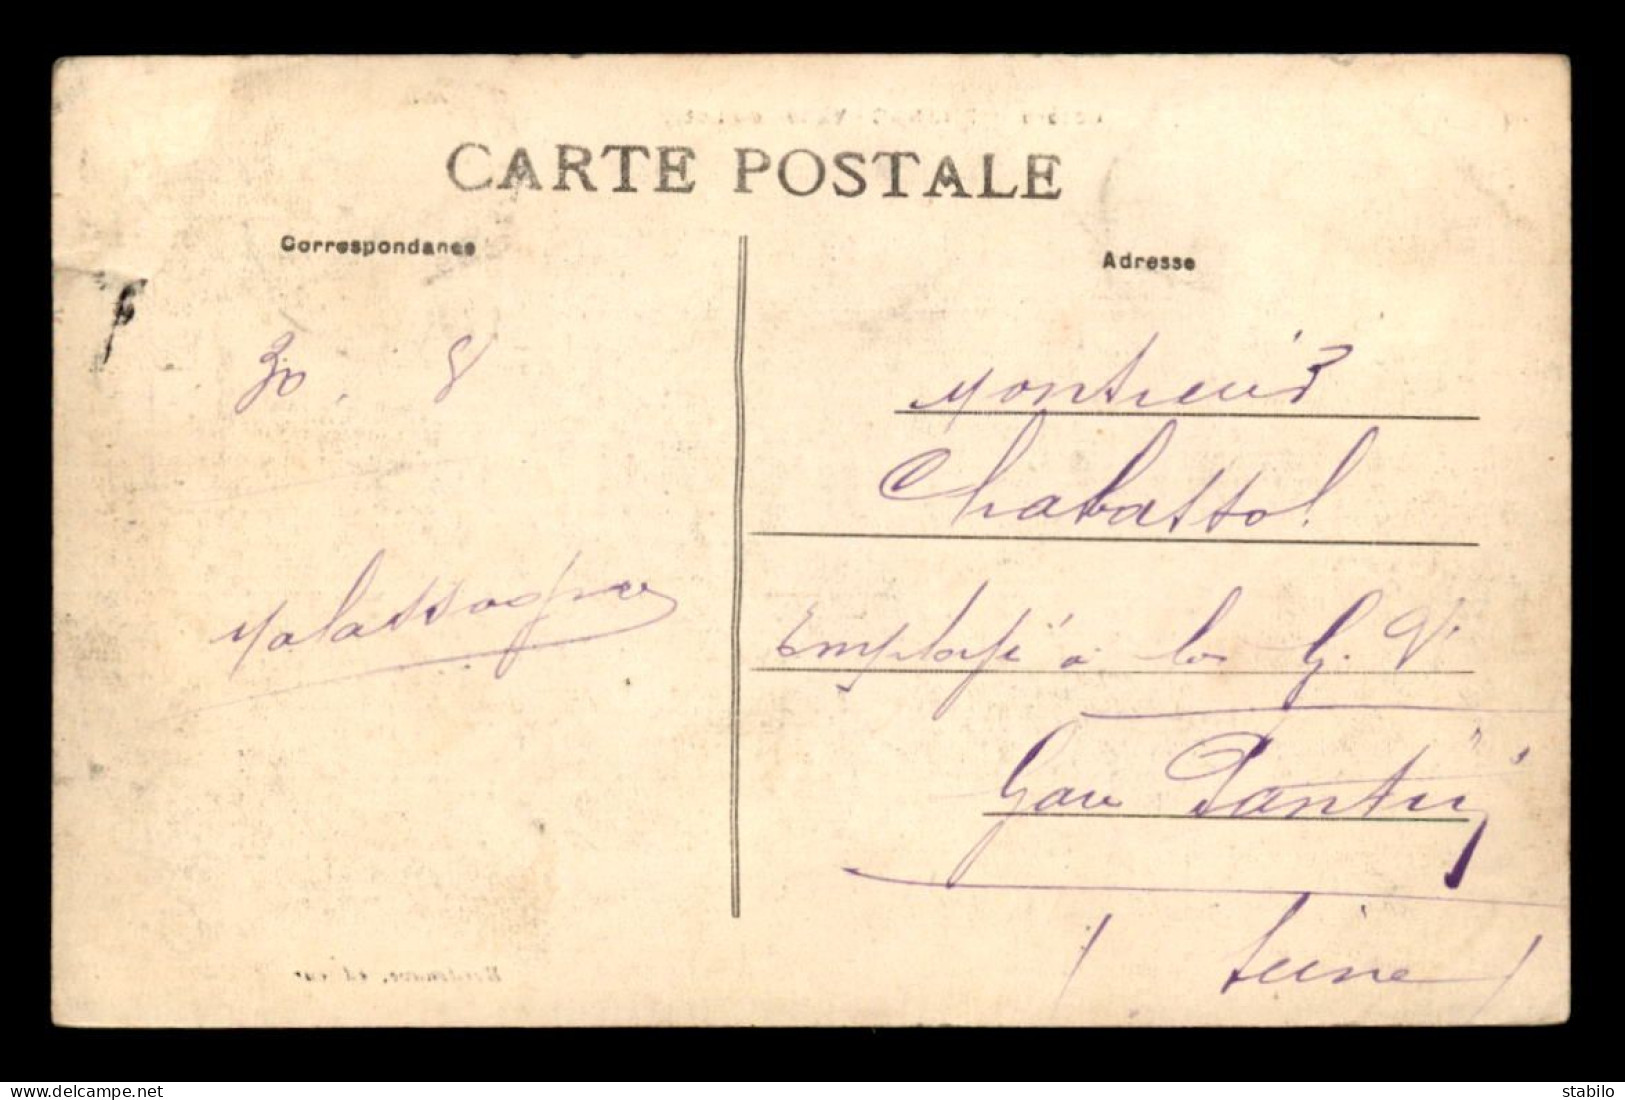 CARTE POSTALE
Correspondance
Adresse
30. 8
Montieur
Chabassol
Employé à la G. V.
Gare Pantin
(Seine)
delcampe.net
stabilo